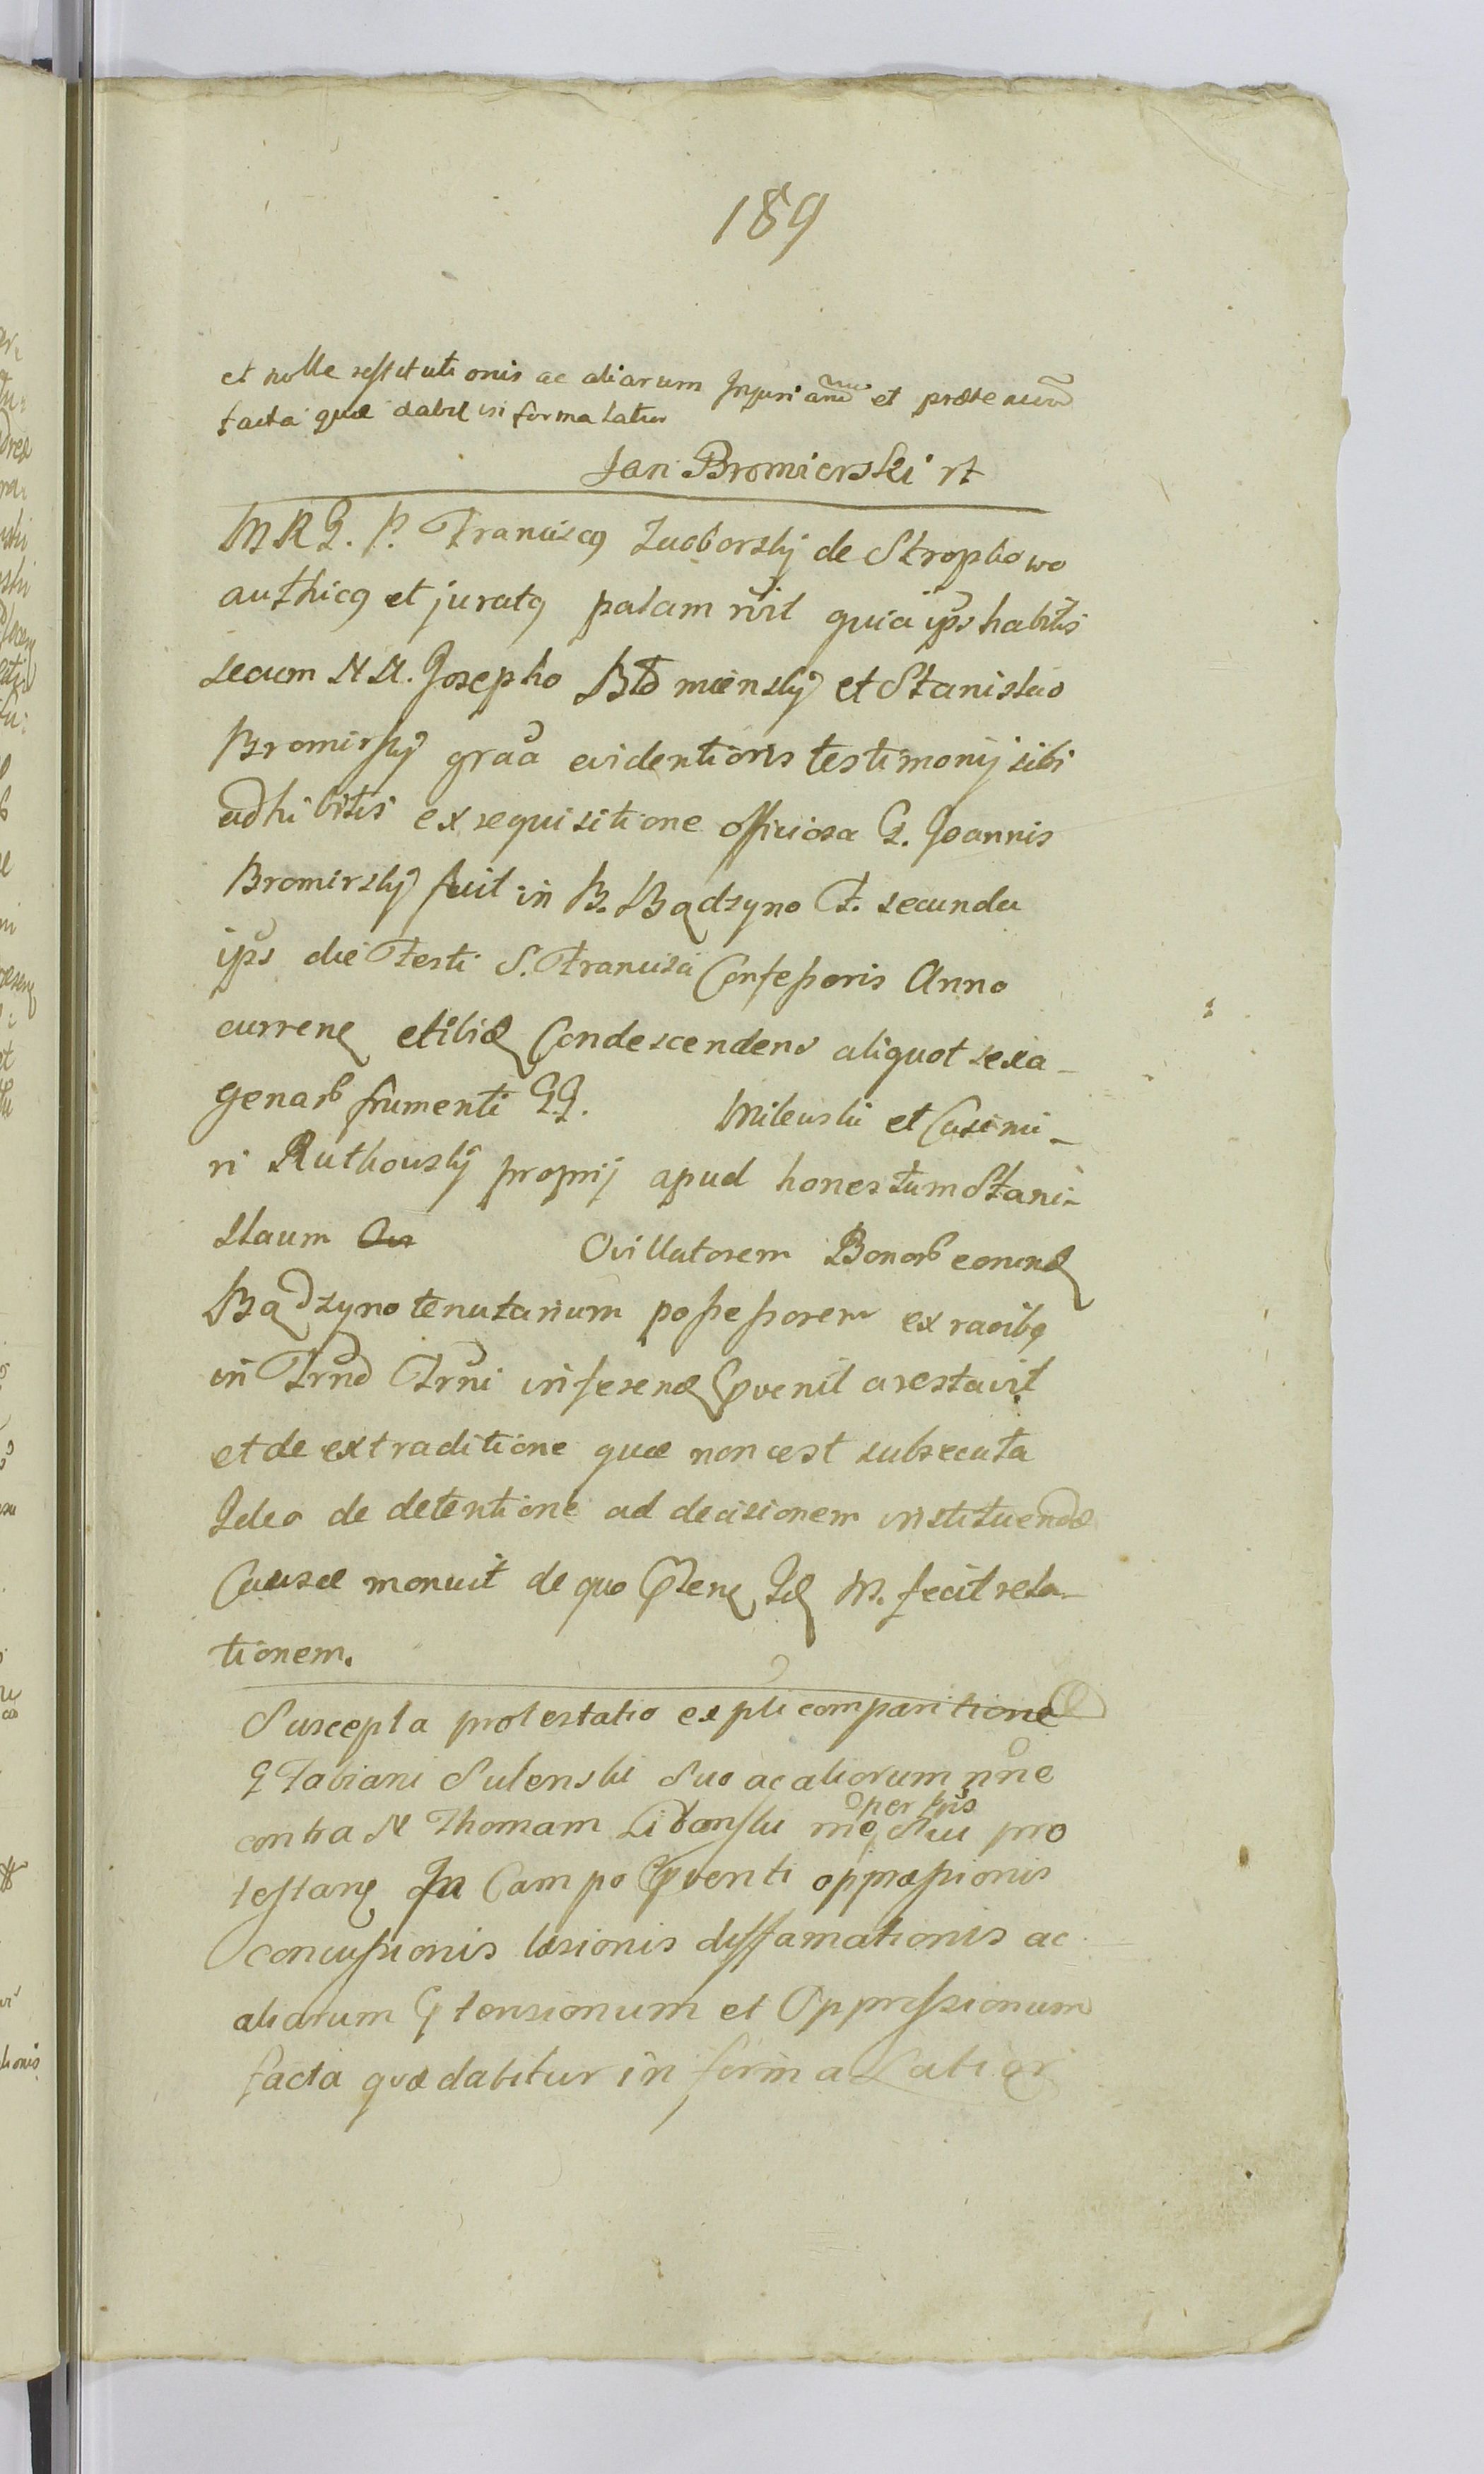 189
et nolle restitutionis ac aliarum Injuriarum et prætensionum
facta quæ dabit in forma latior
Jan Bromierski rt
M R G. P. Franciscq Zuoborskj de Strophowo
authicq et juratq palam rvit quia ips habitis
secum N N. Josepho Błomienskj et Stanislao
Bromirskj graa evidentioris testimonij sibi
adhibitis ex requisitione officiosa G. Joannis
Bromirskj fuit in B. Bądzyno F. secunda
ips die Festi S. Francisci Confessoris Anno
curren et ibid Condescendens aliquot sexa-
genarb frumenti G G. Milewski et Casimi-
ri Ruthouskj proprij apud honestum Stani-
slaum Ovillatorem Bonorb eorund
Bądzyno tenutarium possessorem ex raoibq
in Trno Trni inferend Cpvenit arestavit
et de extraditione quæ non est subsecuta
Ideo de detentione ad decisionem instituendæ
Causæ monuit de quo Pten Id M. fecit rela-
tionem.
Suscepta protestatio ex pti comparitione
G Fabiani Sulenski Suo ac aliorum nne
contra N Thomam me per pris Sui pro
testan In Campo Cpventi oppræssionis
concussionis læsionis diffamationis ac
aliarum Ptensionum et Oppressionum
facta quæ dabitur in forma Latiori